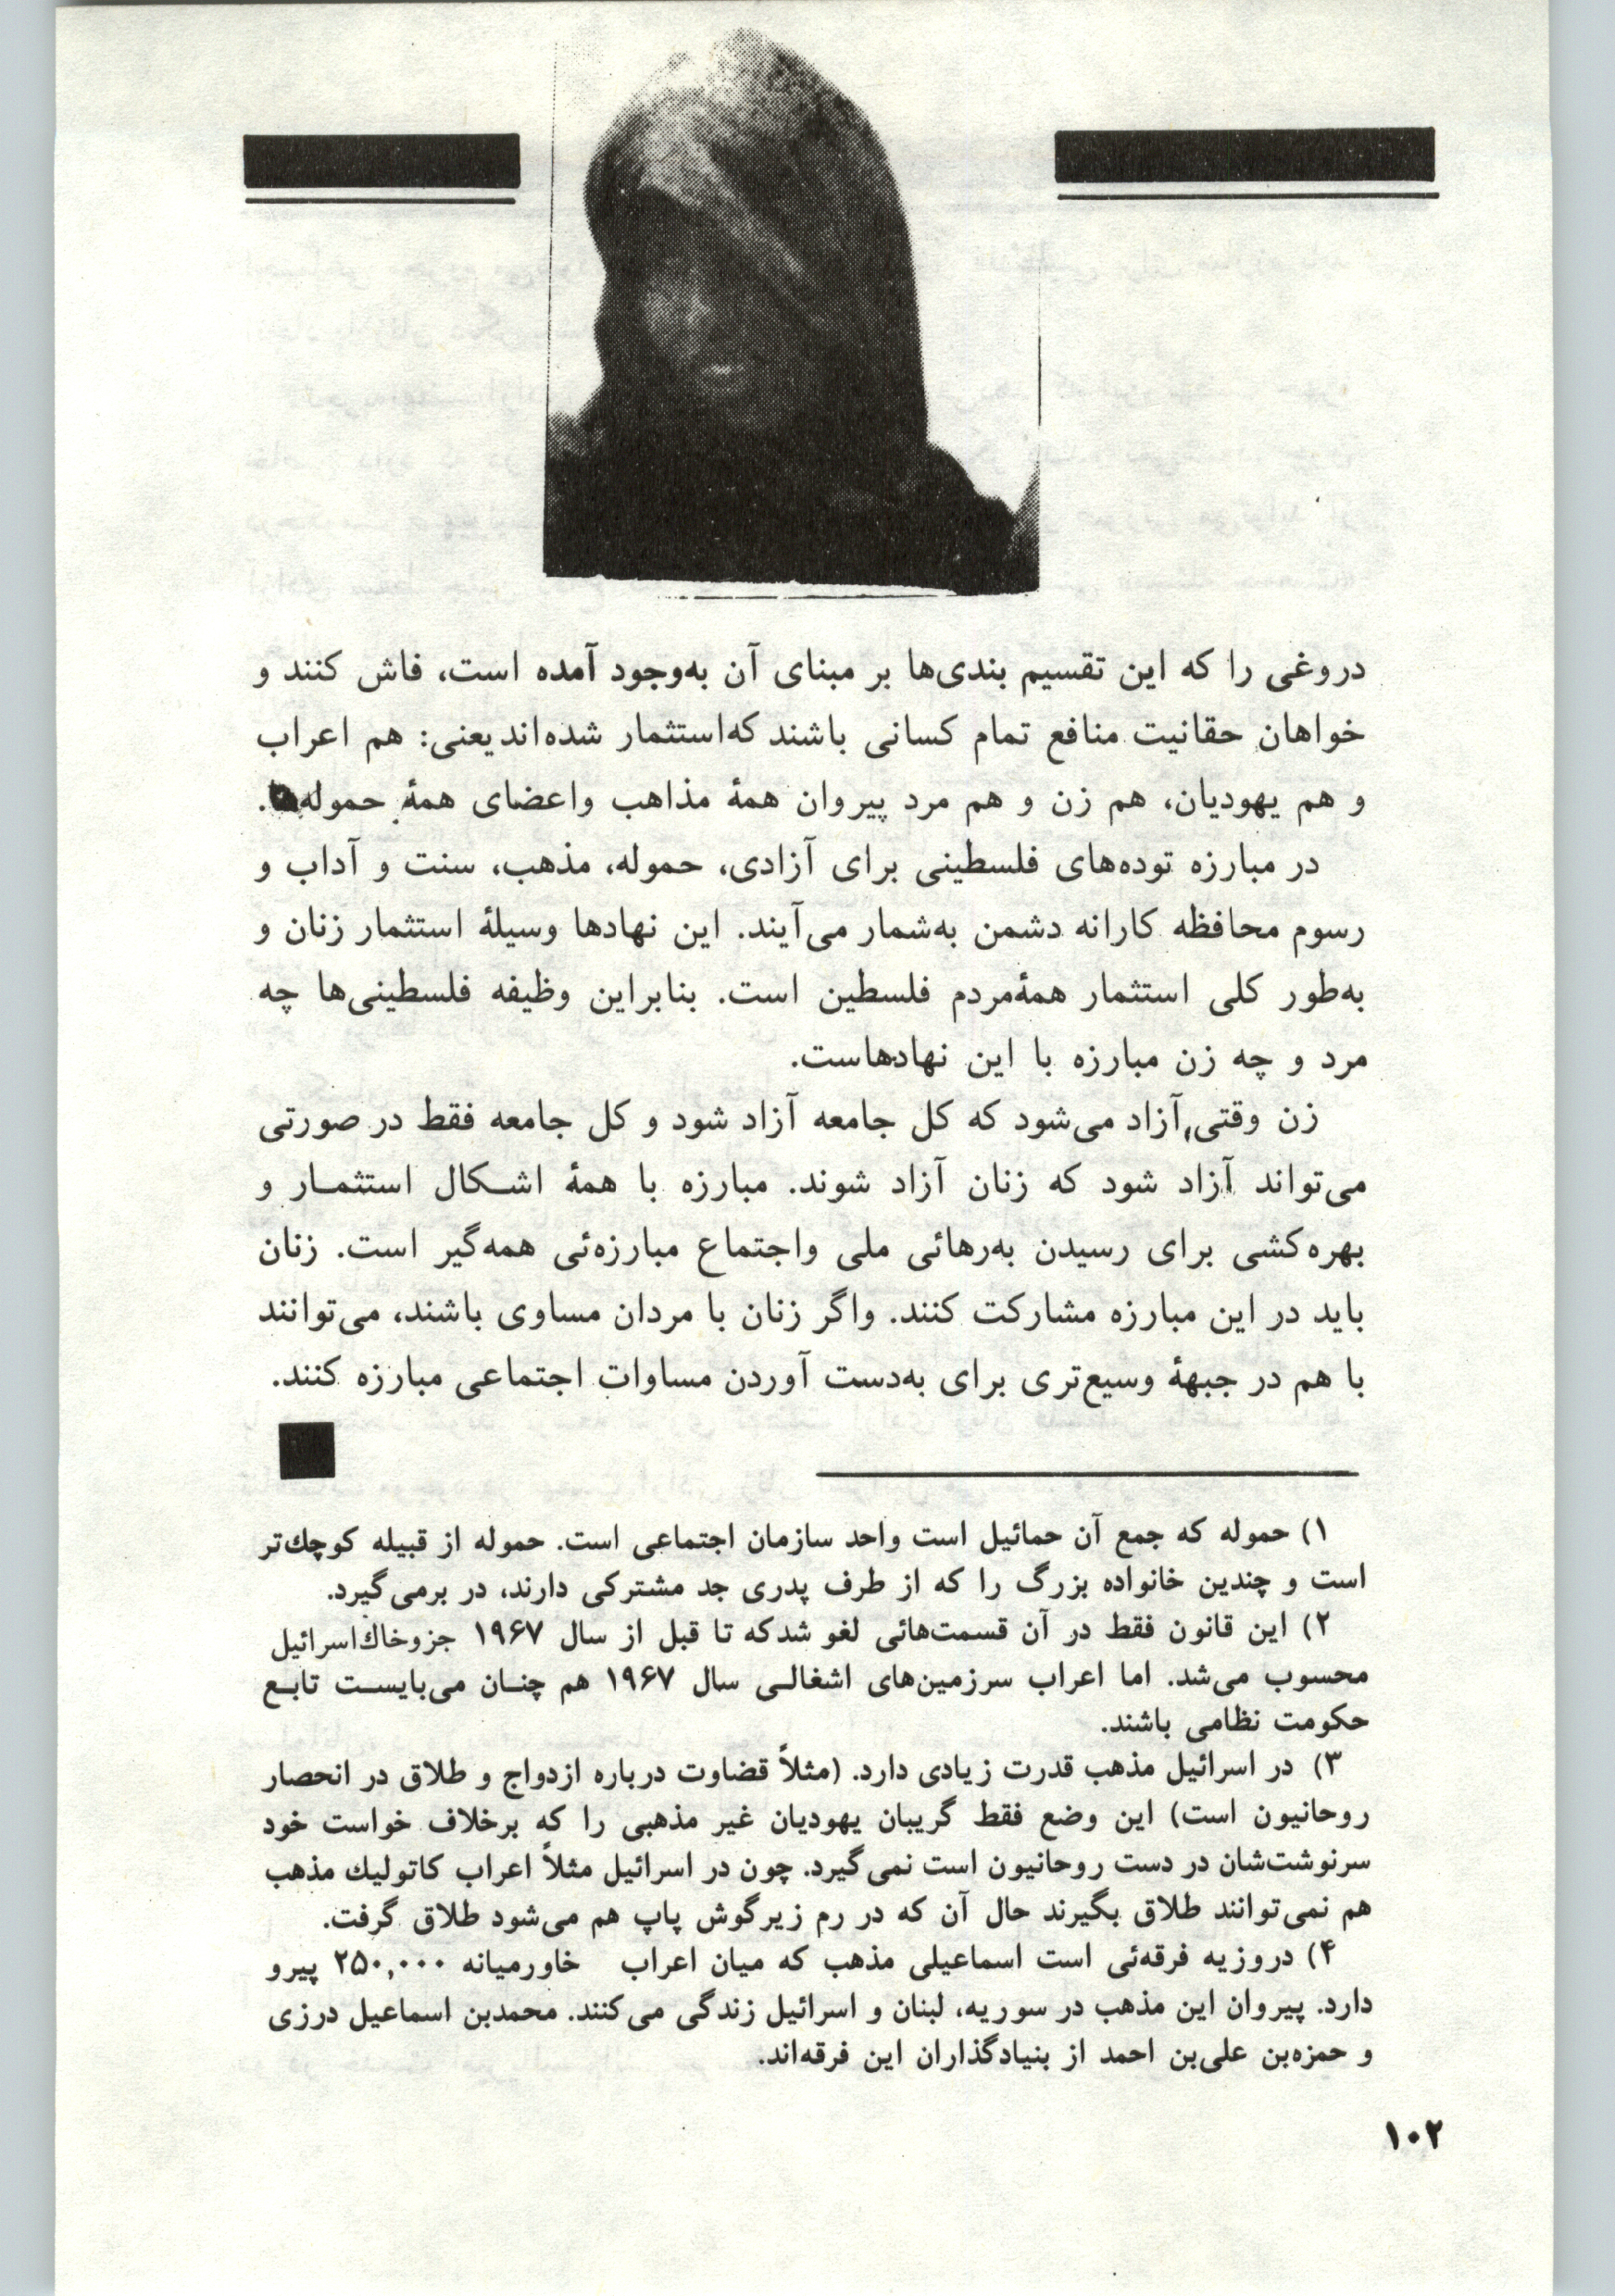 دروغی را که این تقسیم بندی‌ها بر مبنای آن به‌وجود آمده است، فاش کنند و
خواهان حقانیت منافع تمام کسانی باشند که‌استثمار شده‌اند یعنی: هم اعراب
و هم یهودیان، هم زن و هم مرد پیروان همهٔ مذاهب واعضای همهٔ حموله‌ها.
در مبارزه توده‌های فلسطینی برای آزادی، حموله، مذهب، سنت و آداب و
رسوم محافظه کارانه دشمن به‌شمار می‌آیند. این نهادها وسیلهٔ استثمار زنان و
به‌طور کلی استثمار همهٔ‌مردم فلسطین است. بنابراین وظیفه فلسطینی‌ها چه
مرد و چه زن مبارزه با این نهادهاست.
زن وقتی آزاد می‌شود که کل جامعه آزاد شود و کل جامعه فقط در صورتی
می‌تواند آزاد شود که زنان آزاد شوند. مبارزه با همهٔ اشـکال استثمـار و
بهره‌کشی برای رسیدن به‌رهائی ملی واجتماع مبارزه‌ئی همه‌گیر است. زنان
باید در این مبارزه مشارکت کنند. واگر زنان با مردان مساوی باشند، می‌توانند
با هم در جبههٔ وسیع‌تری برای به‌دست آوردن مساوات اجتماعی مبارزه کنند.
۱) حموله که جمع آن حمائیل است واحد سازمان اجتماعی است. حموله از قبیله کوچك‌تر
است و چندین خانواده بزرگ را که از طرف پدری جد مشترکی دارند، در برمی‌گیرد.
۲) این قانون فقط در آن قسمت‌هائی لغو شدکه تا قبل از سال ۱۹۶۷ جزوخاك‌اسرائیل
محسوب می‌شد. اما اعراب سرزمین‌های اشغالـی سال ۱۹۶۷ هم چنـان می‌بایسـت تابـع
حکومت نظامی باشند.
۳) در اسرائیل مذهب قدرت زیادی دارد. (مثلاً قضاوت درباره ازدواج و طلاق در انحصار
روحانیون است) این وضع فقط گریبان یهودیان غیر مذهبی را که برخلاف خواست خود
سرنوشت‌شان در دست روحانیون است نمی‌گیرد. چون در اسرائیل مثلاً اعراب کاتولیك مذهب
هم نمی‌توانند طلاق بگیرند حال آن که در رم زیرگوش پاپ هم می‌شود طلاق گرفت.
۴) دروزیه فرقه‌ئی است اسماعیلی مذهب که میان اعراب خاورمیانه ۲۵۰,۰۰۰ پیرو
دارد. پیروان این مذهب در سوریه، لبنان و اسرائیل زندگی می‌کنند. محمدبن اسماعیل درزی
و حمزه‌بن علی‌بن احمد از بنیادگذاران این فرقه‌اند.
۱۰۲